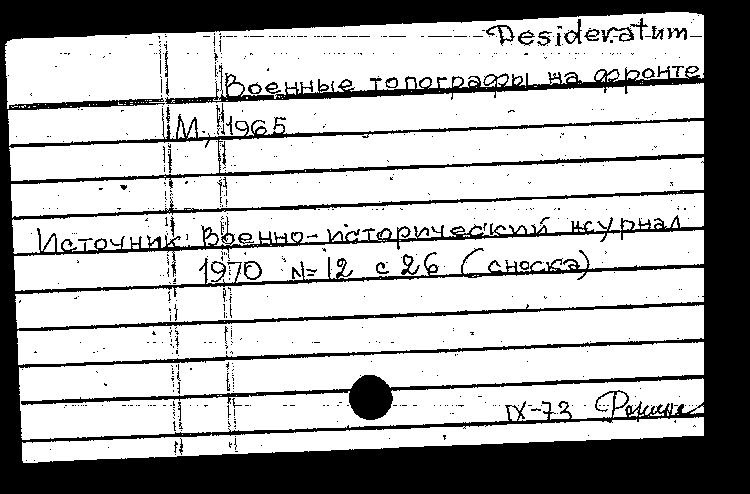 Desideratum
Военные топографы на фронте
М, 1965
Источник: Военно-исторический журнал
1970 № 12 с 26 (сноска)
IX-73